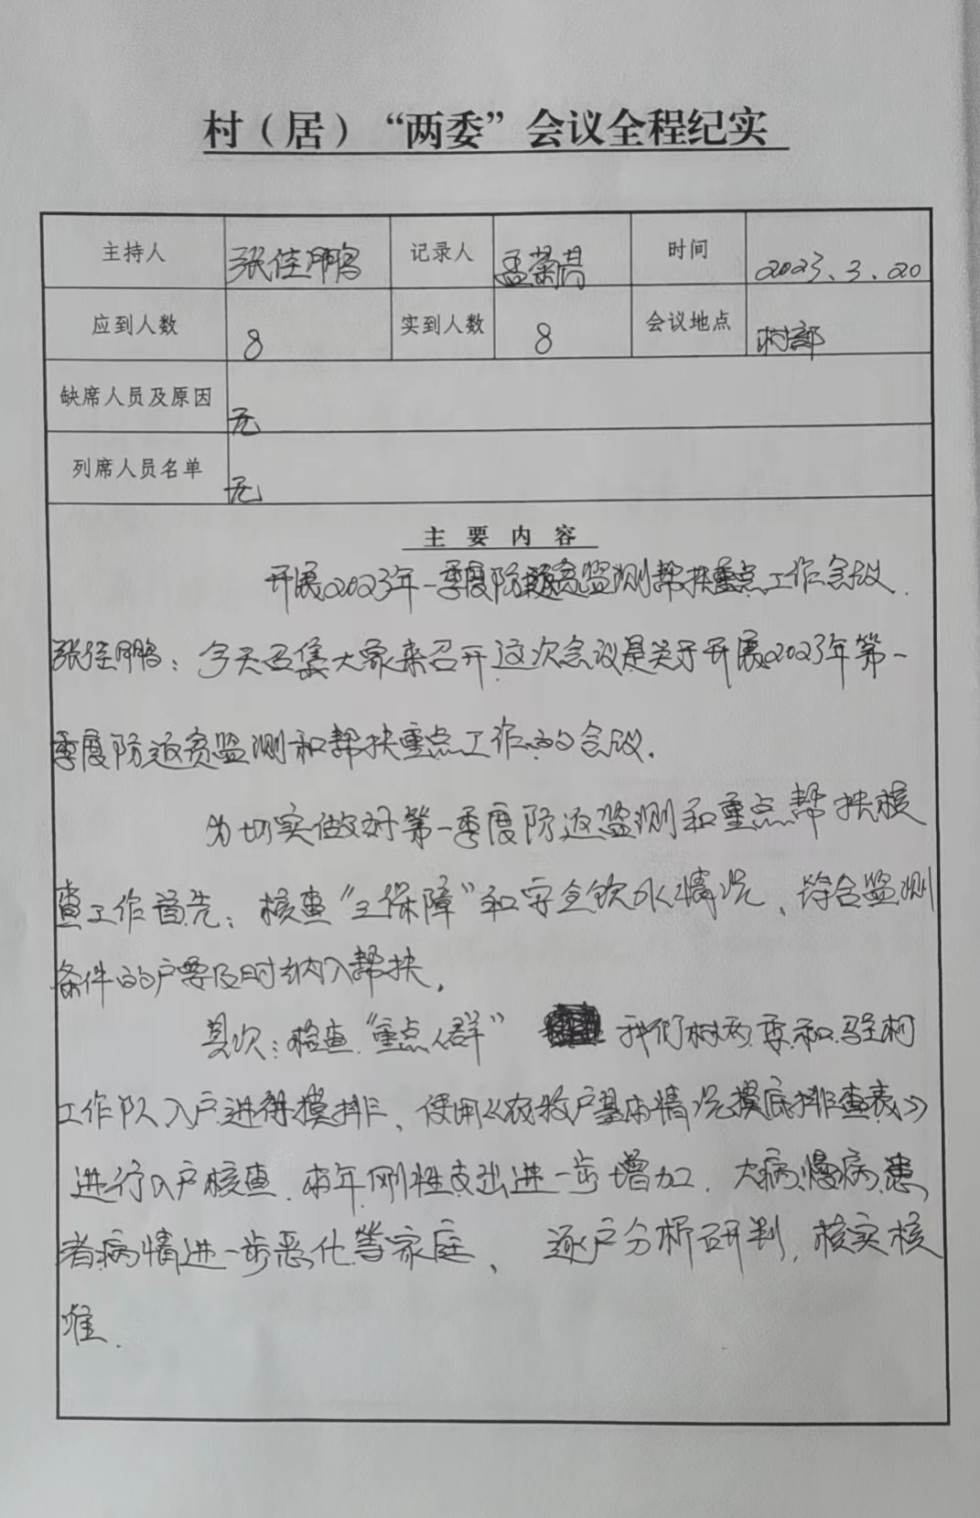 村（居）“两委”会议全程纪实
主持人 张佳鹏 记录人 孟荣 时间 2023.3.20
应到人数 8 实到人数 8 会议地点 村部
缺席人员及原因 无
列席人员名单 无
主要内容
开展2023年一季度防返贫监测帮扶重点工作会议.
张佳鹏：今天召集大家来召开这次会议是关于开展2023年第一
季度防返贫监测和帮扶重点工作的会议.
为切实做好第一季度防返监测和重点帮扶核
查工作首先：核查“三保障”和安全饮水情况、符合监测
条件的户要及时纳入帮扶.
其次：检查“重点人群” 我们村两委和驻村
工作队入户进行摸排、使用《农牧户基本情况摸底排查表》
进行入户核查.本年刚性支出进一步增加.大病慢病患
者病情进一步恶化等家庭、逐户分析研判,核实核
准.